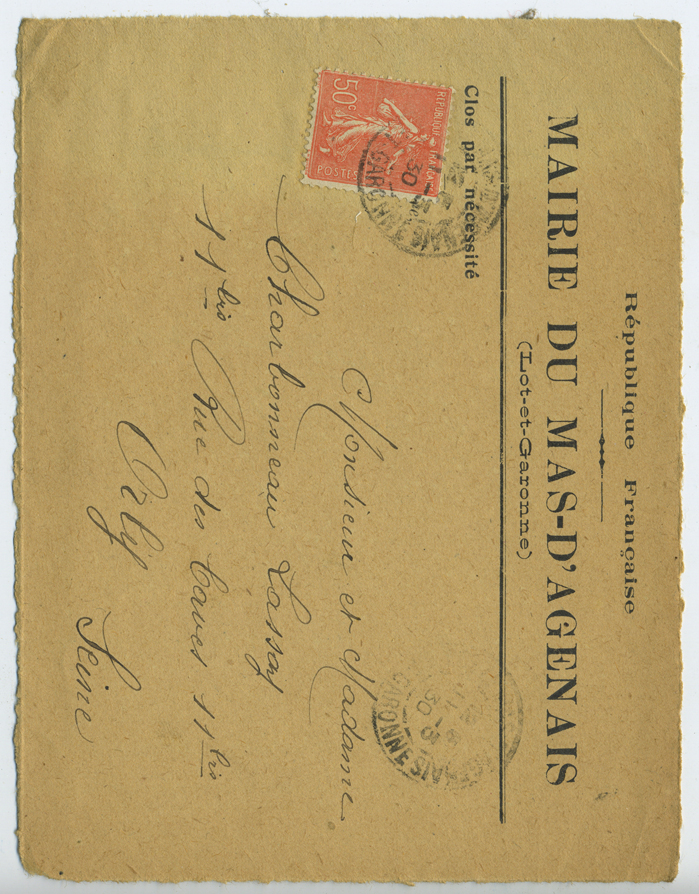 République Française
MAIRIE DU MAS-D'AGENAIS
(Lot-et-Garonne)
Clos par nécessité
RÉPUBLIQUE FRANÇAISE
50c
POSTES
GARONNE
30
Monsieur et Madame
Charbonneau Lassay
11bis Rue des Caves 11bis
Orly
Seine
AGENAIS
GARONNE
30